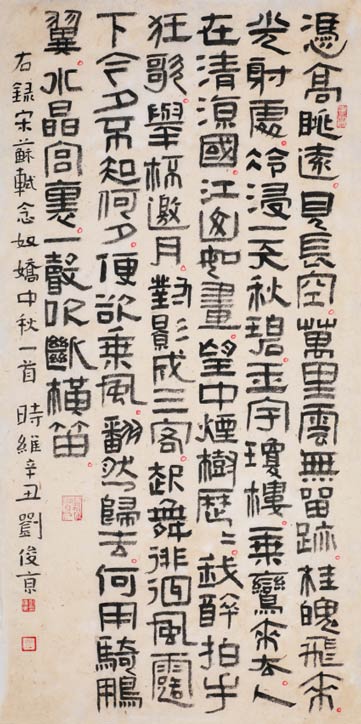 憑高眺遠見長空萬里雲無留跡桂魄飛來
光射處冷浸一天秋碧玉宇瓊樓乘鸞來去人
在清涼國江山如畫望中煙樹歷〻我醉拍手
狂歌舉杯邀月對影成三客起舞徘徊風露
下今夕不知何夕便欲乘風翻然歸去何用騎鵬
翼水晶宮裏一聲吹斷橫笛
右録宋蘇軾念奴嬌中秋一首 時維辛丑 劉俊京